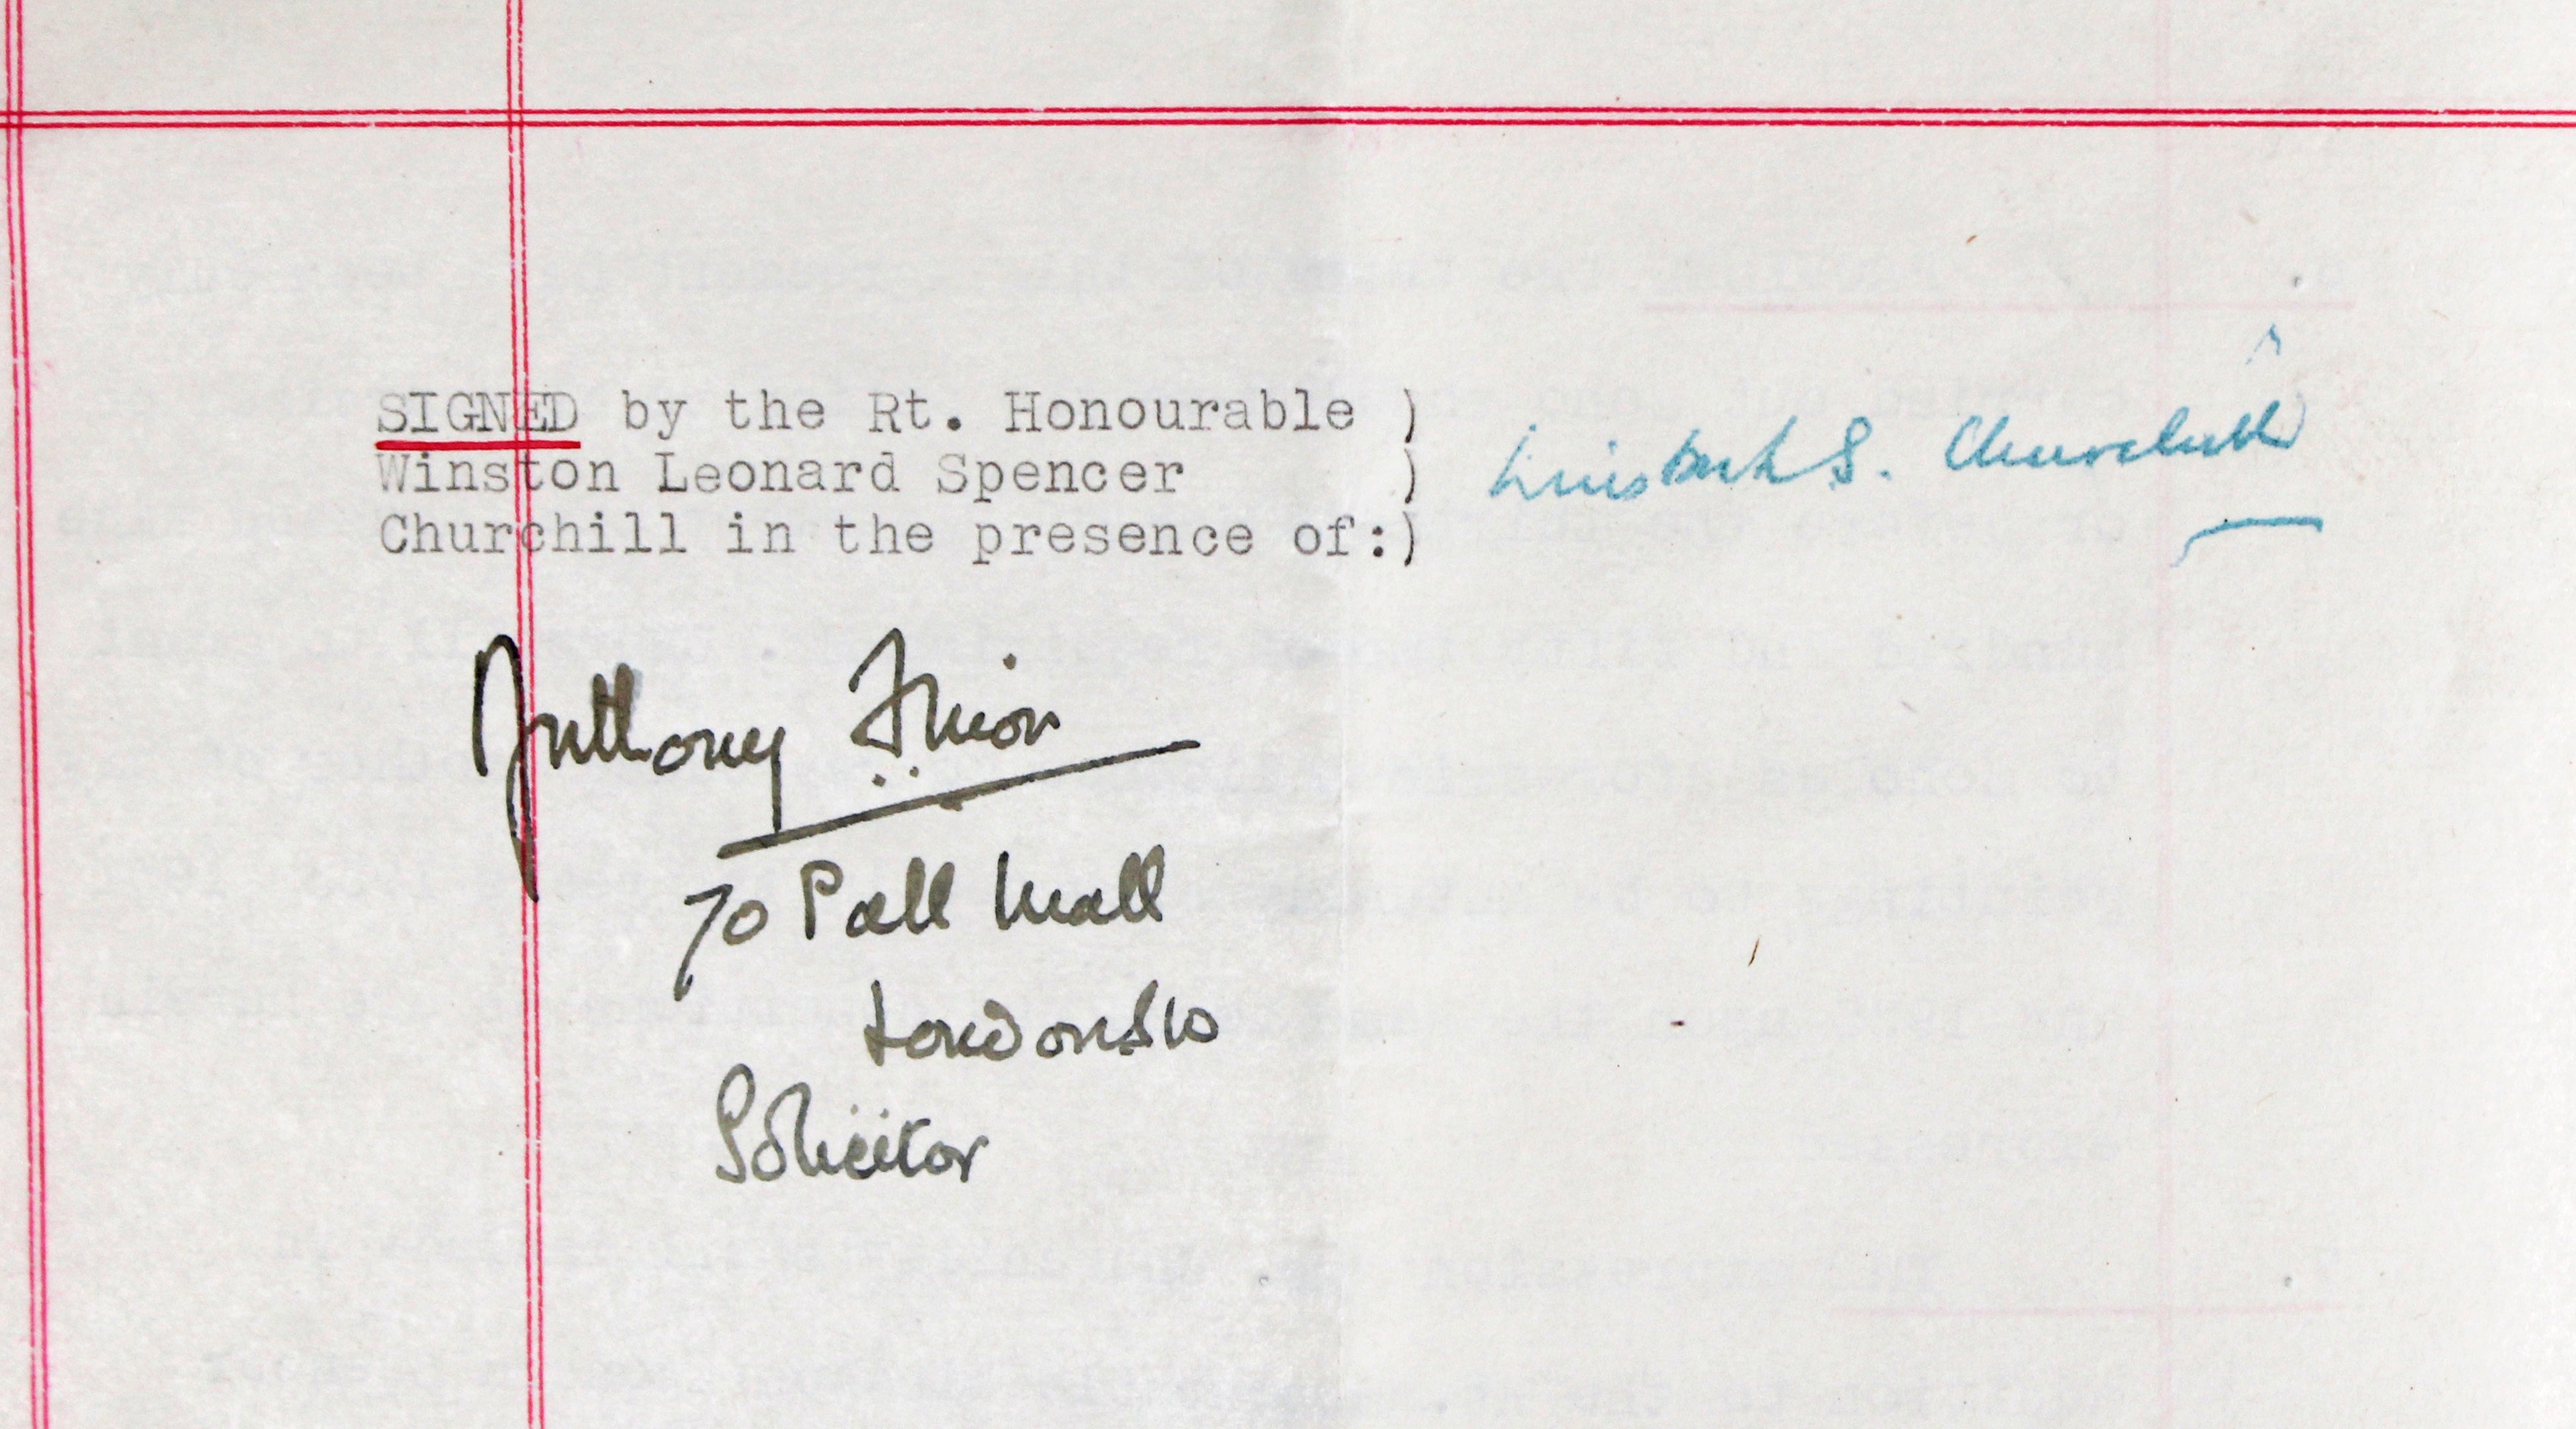 SIGNED by the Rt. Honourable )
Winston Leonard Spencer )
Churchill in the presence of:)
Winston S. Churchill
Anthony
70 Pall Mall
London SW
Solicitor